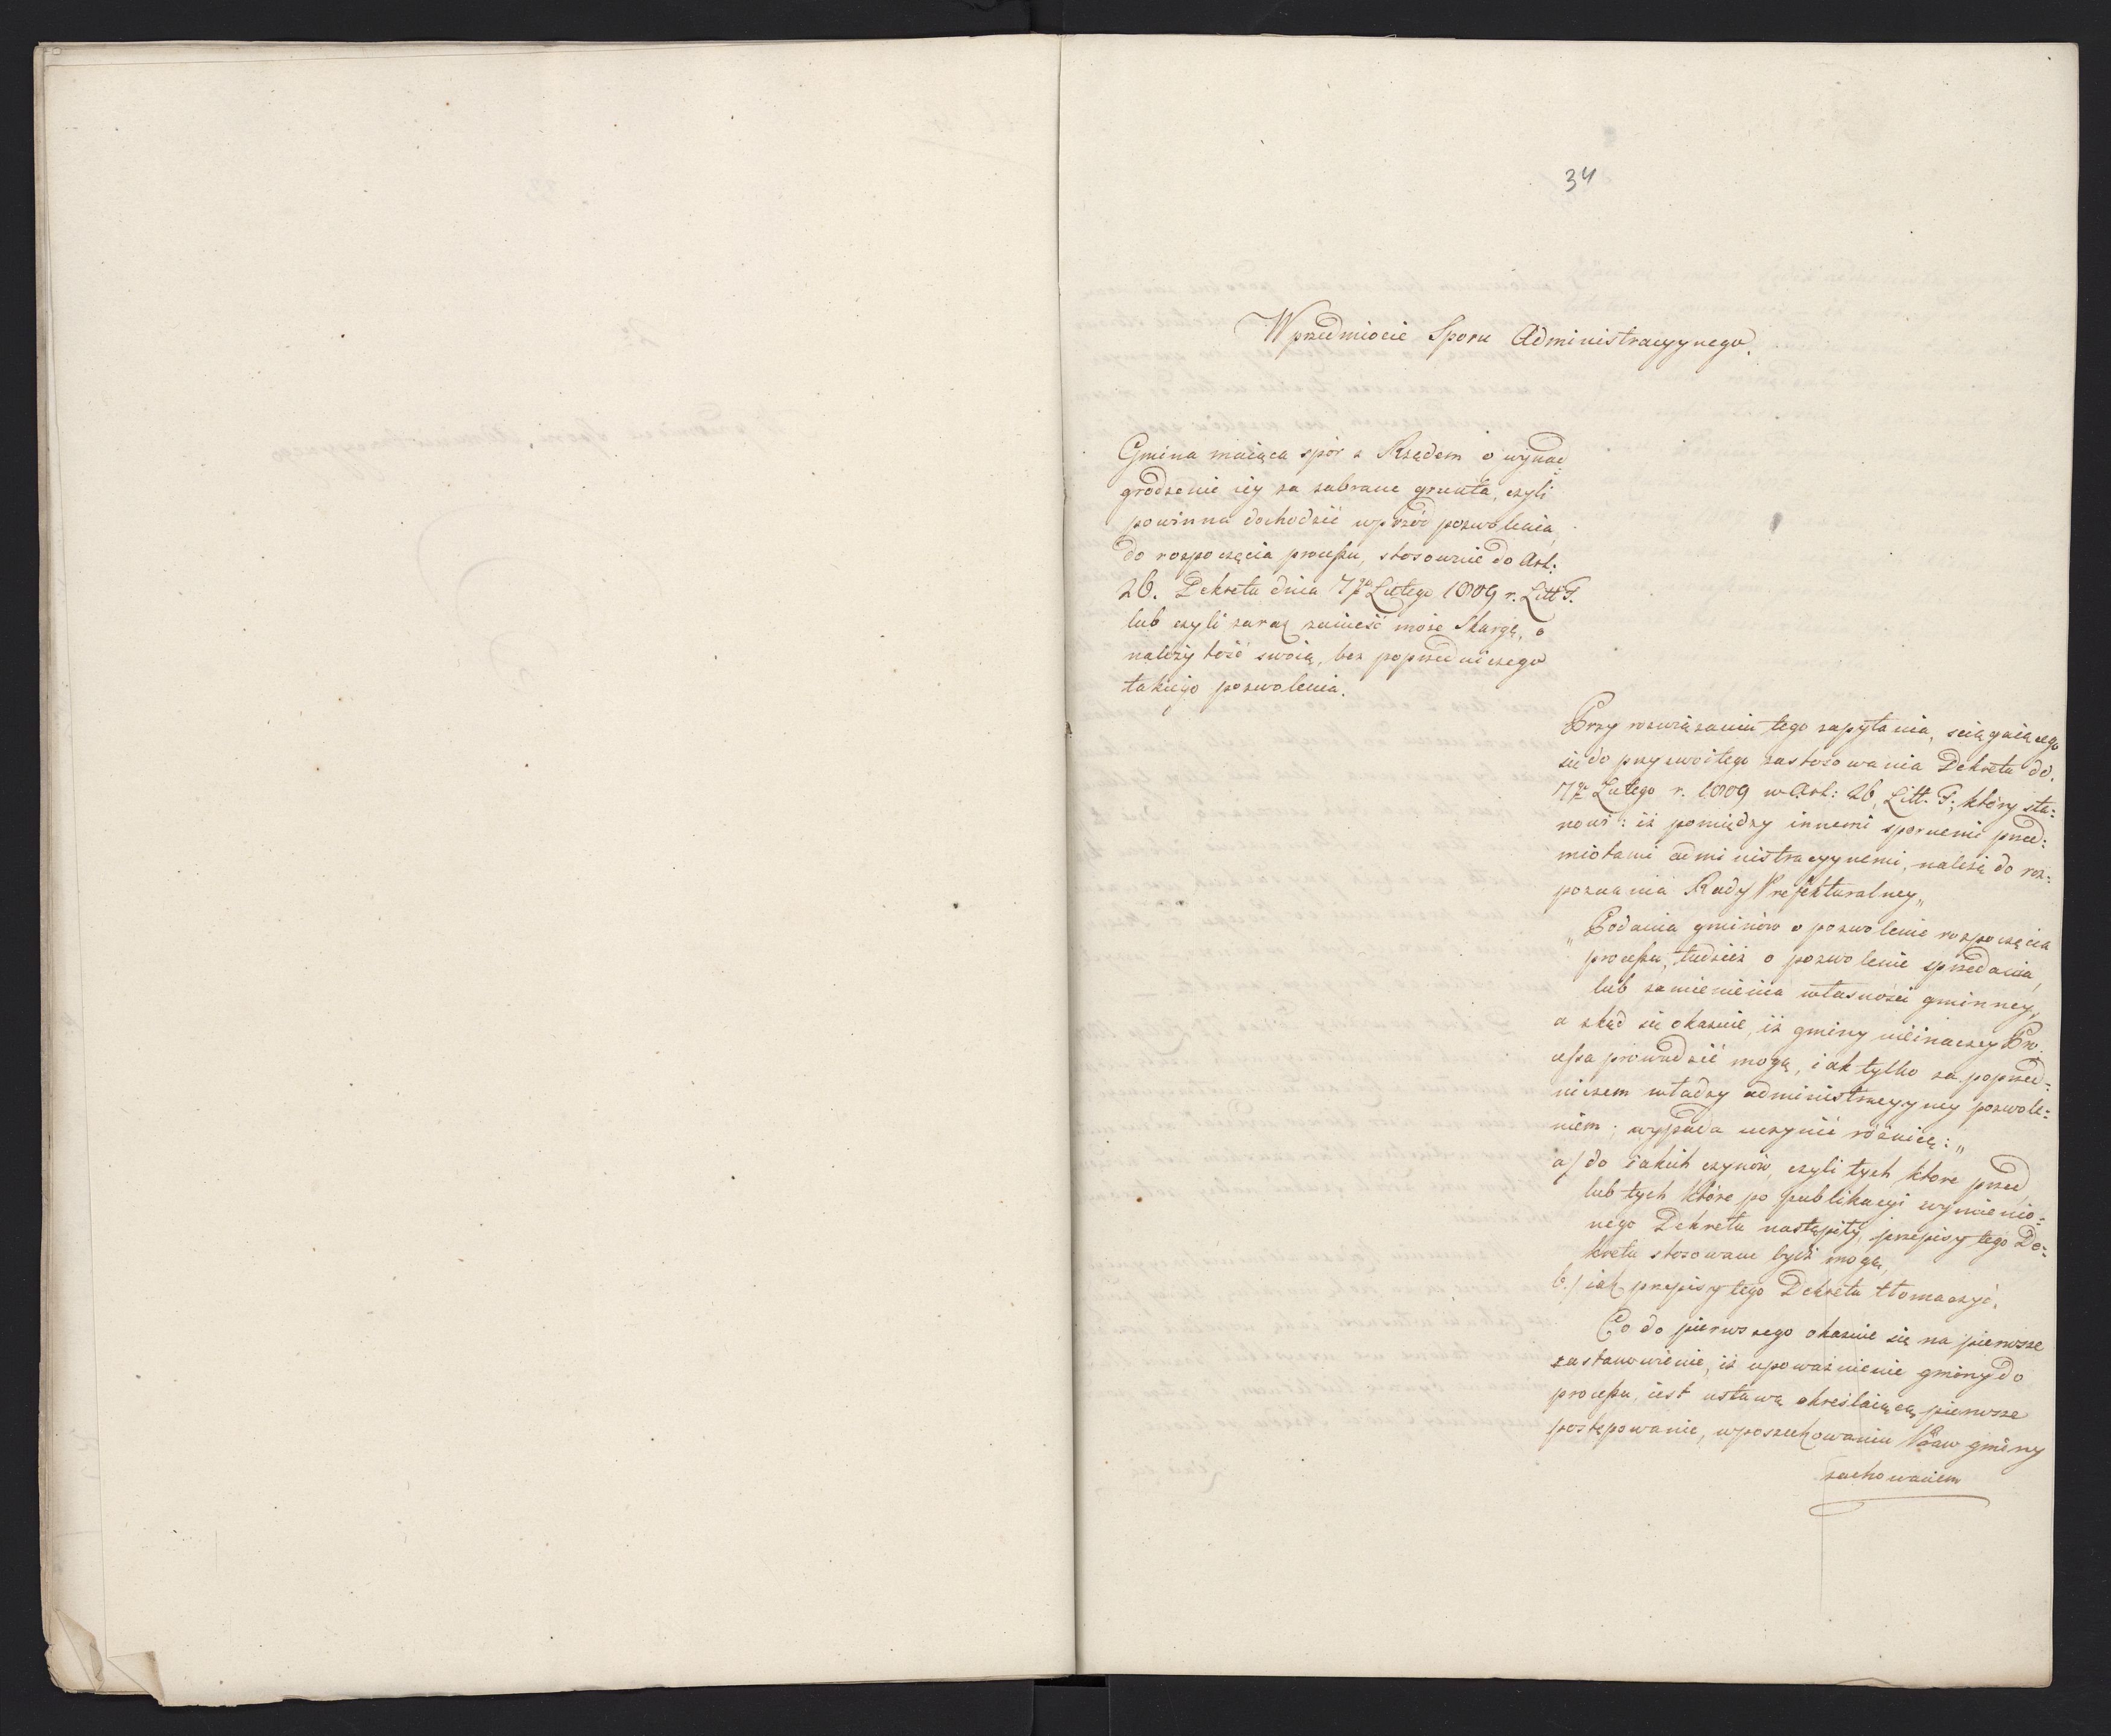 34
W przedmiocie Sporu Administracyynego.
Gmina maiąca spór z Rządem o wyna-
grodzenie iey za zabrane grunta, czyli
powinna dochodzić wprzód pozwolenia
do rozpoczęcia processu, stosownie do Art:
26. Dekretu dnia 7go Lutego 1809 r. Litt F.
lub czyli zaraz zanieść może Skargę, o
należytość swoią, bez poprzedniczego
takiego pozwolenia.
Przy rozwiązaniu tego zapytania, sciągaiącego
się do przyzwoitego zastosowania Dekretu dd.
7go Lutego r. 1809 w Art: 26, Litt. F; który sta=
nowi: iż pomiędzy innemi spornemi przed=
miotami administracyynemi, należą do roz=
poznania Rady Prefekturalney„
„Podania gminów o pozwolenie rozpoczęcia
processu, tudzież o pozwolenie sprzedania,
lub zamienienia własności gminney,
a zkąd się okazuie, iż gminy nieinaczey Pro=
cessa prowadzić mogą, iak tylko za poprzed=
niczem władzy administracyyney pozwole=
niem; wypada uczynić różnicę:„
a/ do iakich czynów, czyli tych które przed
lub tych które po publikacyi wymienio=
nego Dekretu nastąpiły, przepisy tego De=
kretu stosowane bydź mogą,
b./ iak przepisy tego Dekretu tłomaczyć.
Co do pierwszego okazuie się na pierwsze
zastanowienie, iż upoważnienie gminy do
processu, iest ustawą określaiącą pierwsze
postępowanie, w poszukowaniu Praw gminy
zachowaniem